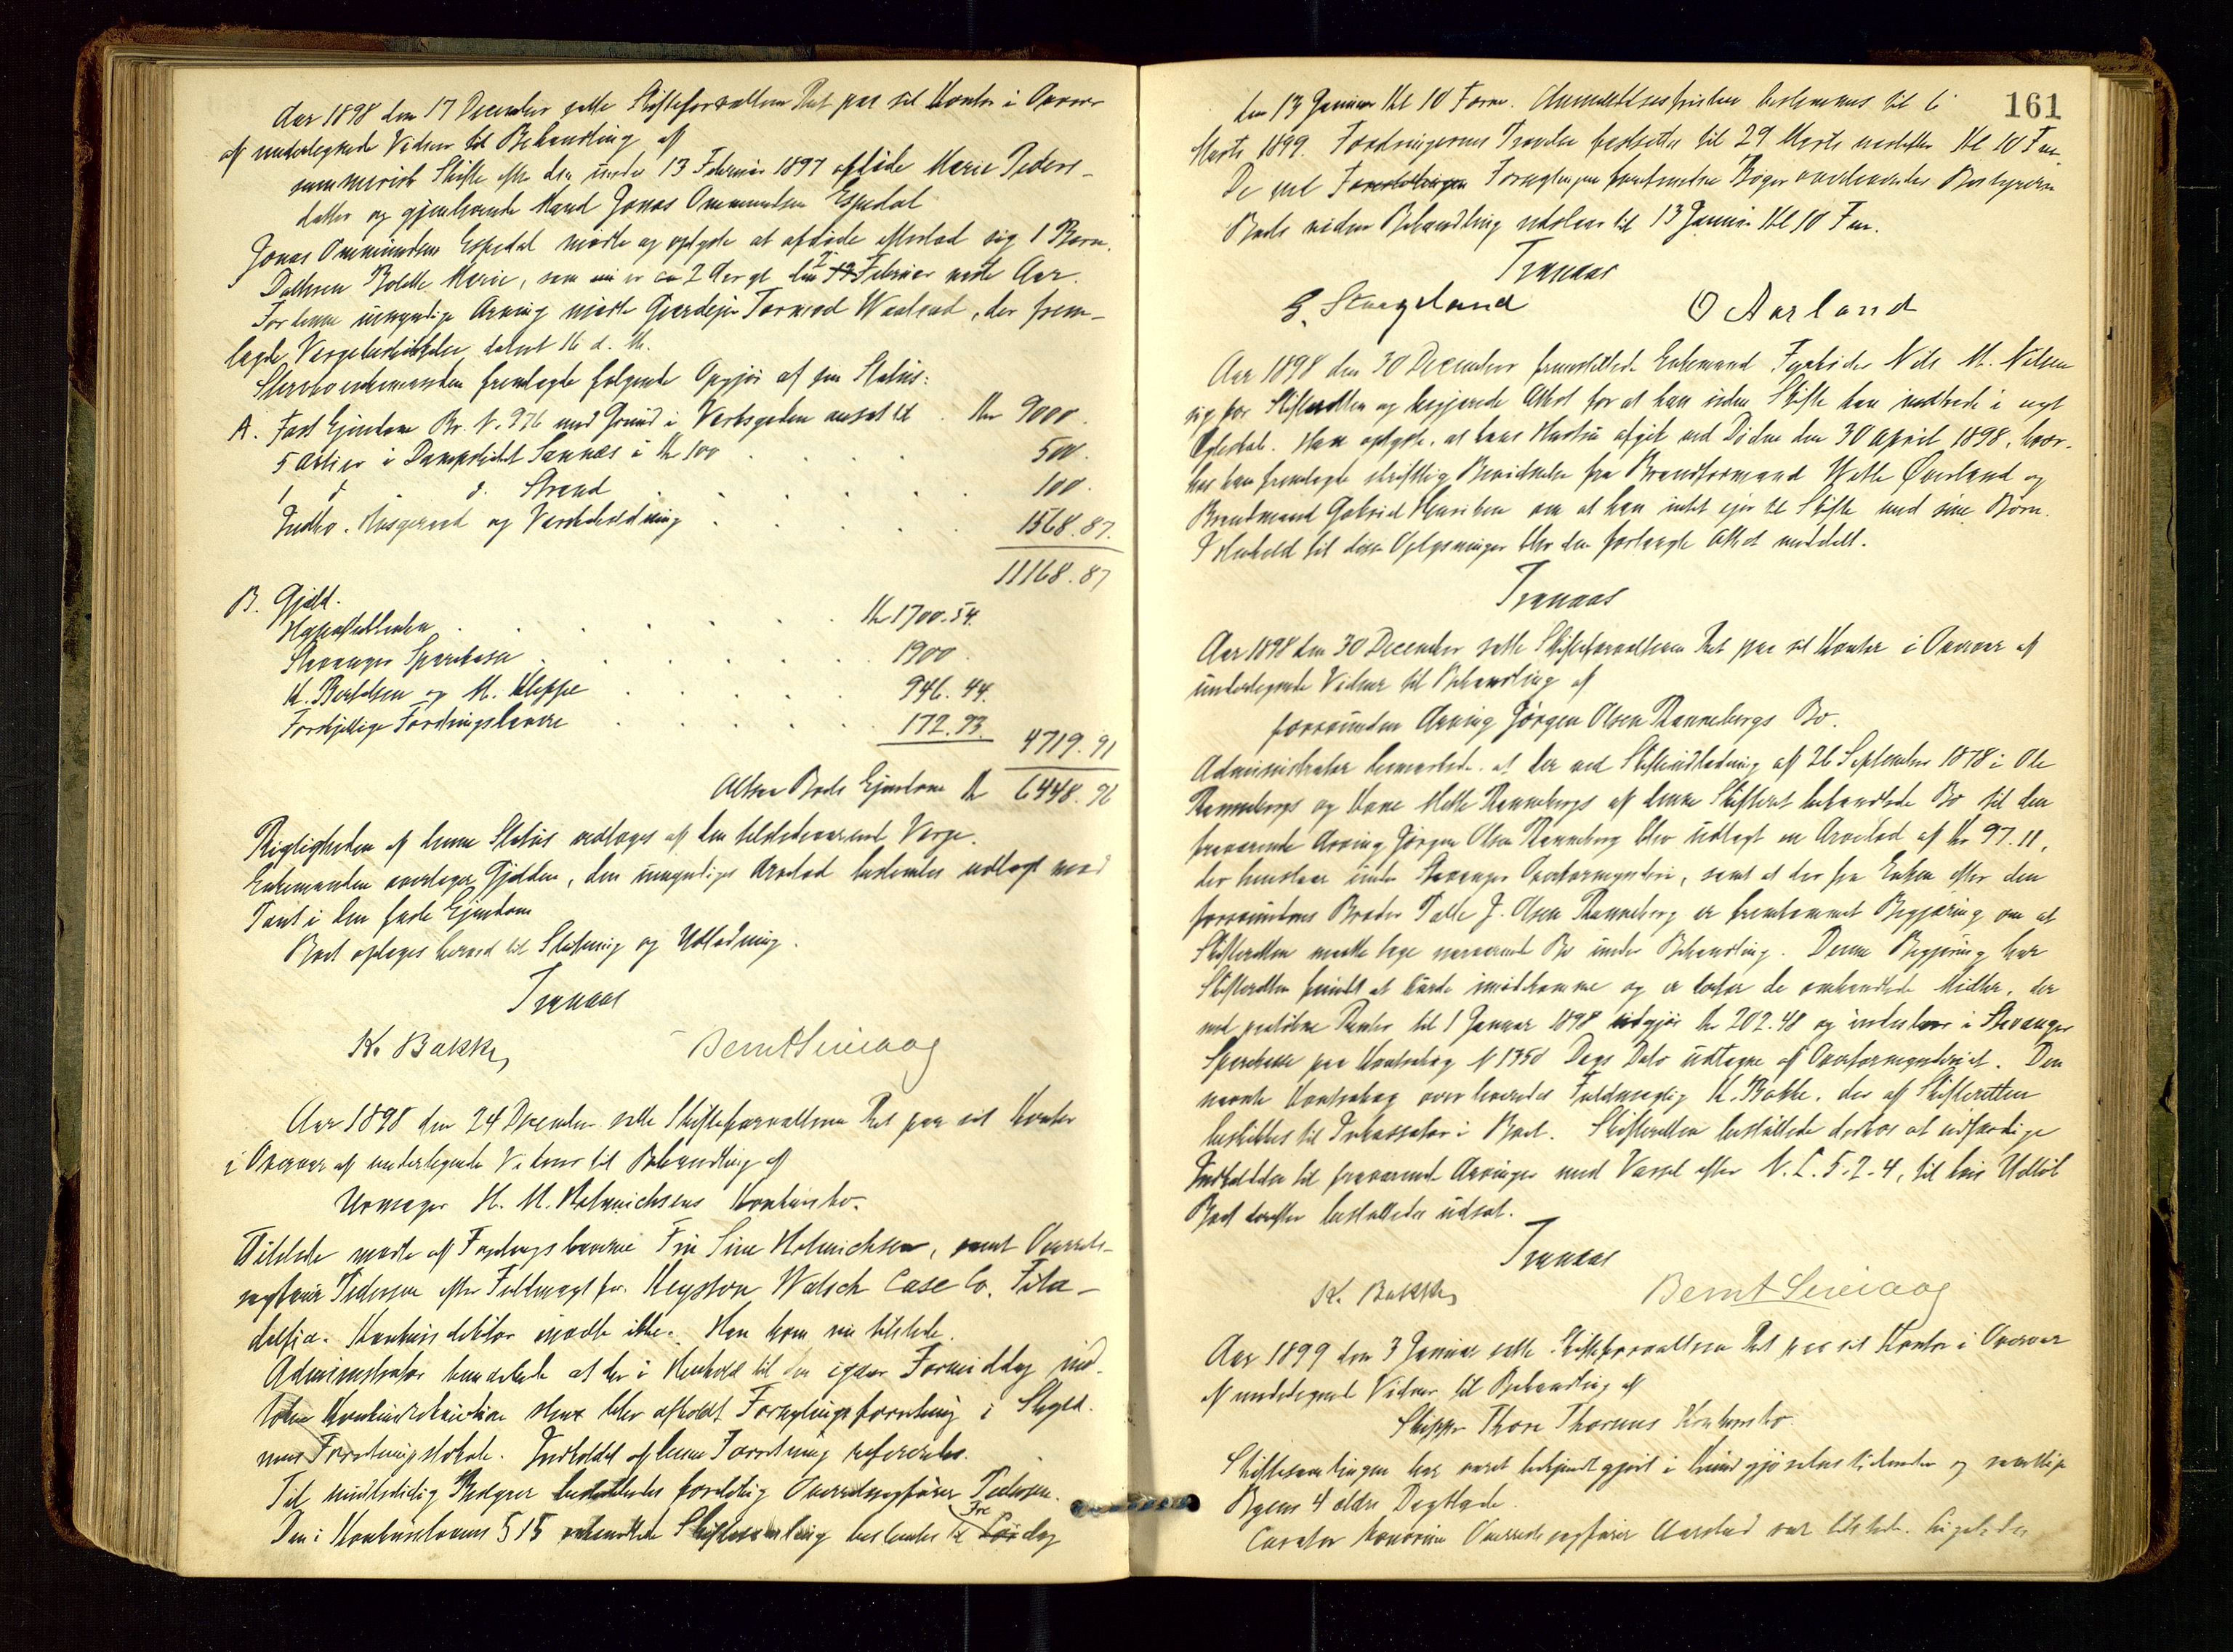 Aar 1898 den 17 December satte Skifteforvalteren Ret paa sit Kontor i Overvær
af undertegnede Vidner til Behandling af
summarisk Skifte efter den under 13 Februar 1897 afdøde Marie Peders-
datter og gjenlevende Mand Jonas Ommundsen Espedal
Jonas Ommundsen Espedal mødte og oplyste at afdøde efterlod sig 1 Barn.
Datteren Bolette Marie, som nu er ca 2 Aar gl. Februar næste Aar.
For denne umyndige Arving mødte Tormod Waaland, der frem-
lagde Vergebeskikkelse dateret 16 d. M.
Stervboenkemanden fremlagde følgende Opgjør af sin Status:
A. Fast Ejendom Br. N. 926 med Grund i Verksgaden ansat til Kr 9000.
5 Aktier i Dampskibet Sandnæs à Kr 100 500.
1 d. d. Strand 100.
Indbo. Husgeraad og Varebeholdning 1568.87.
11168.87
B. Gjæld.
Hypothekbanken Kr 1700.54.
Stavanger Sparekasse 1900.
K. Bertelsen og M. Kleppe 946.44.
Forskjellige Fordringshavere 172.93.
4719.91
Altsaa Boets Ejendom Kr 6448.96
Rigtigheden af denne Status vedtoges af den tilstedeværende Verge.
Enkemanden overtager Gjælden, den umyndiges Arvelod bestemtes udlagt med
Pant i den faste Ejendom
Boet optoges herved til Slutning og Udlodning.
Tranaas
K. Bakke, Bernt Sømaag
Aar 1898 den 24 December satte Skifteforvalteren Ret paa sit Kontor
i Overvær af undertegnede Vidner til Behandling af
Urmager H. M. Helmichsens Konkursbo.
Tilstede mødte af Fordringshaverne Frk Sine Helmichsen, samt Overrets-
sagfører Pedersen efter Fuldmagt for Keyston Watsch Case Co. Fila-
delfia. Konkursdebitor mødte ikke. Han kom nu tilstede.
Administrator bemærkede at der i Henhold til den igaar Formiddag ind-
komne Konkursbegjæring blev afholdt Forseglingsforretning i Skyld-
nerens Forretningslokale. Indholdet af denne Forretning refereredes.
Til midlertidig Bestyrer beskikkedes foreløbig Overretssagfører Pedersen.
Den i Konkurslovens § 15 omhandlede Skiftesamling bestemtes til Fredag
161
den 13 Januar Kl 10 Form. Anmeldelsesfristen bestemmes til 6
Marts 1899. Fordringernes Prøvelse fastsættes til 29 Marts næstefter Kl 10 Fm.
De ved Forseglingen forefundne Bøger overleveredes Bestyreren
Boets videre Behandling udsattes til 13 Januar Kl 10 Fm.
Tranaas
G. Skaageland O Aarland
Aar 1898 den 30 December fremstillede Enkemand Fyrbøder Nils M. Nilsen
sig for Skifteretten og begjærede Attest for at han uden Skifte kan indtræde i nyt
Egteskab. Han oplyste, at hans Hustru afgik ved Døden den 30 April 1898, hvor-
hos han fremlagte skriftlig Bevidnelse fra Brandformand Welle Øverland og
Brandmand Gabriel Henriksen om at han intet ejer til Skifte med sine Børn.
I Henhold til disse Oplysninger blev den forlangte Attest meddelt.
Tranaas
Aar 1898 den 30 December satte Skifteforvalteren Ret paa sit Kontor i Overvær af
undertegnede Vidner til Behandling af
forsvunden Arving Jørgen Olsen Rannebergs Bo.
Administrator bemærkede at der ved Skifteudlodning af 26 September 1878 i Ole
Rannebergs og Kone Mette Rannebergs af denne Skifteret behandlede Bo til den
fraværende Arving Jørgen Olsen Ranneberg blev udlagt en Arvelod af Kr 97.11,
der henstaar under Stavanger Overformynderi, samt at der fra Enken efter den
forsvundnes Broder Palle J. Olsen Ranneberg er fremkommet Begjæring om at
Skifteretten maatte tage nærværende Bo under Behandling. Denne Begjæring har
Skifteretten fundet at burde imødekomme og er derfor de omhandlede Midler, der
med paaløbne Renter til 1 Januar 1898 udgjør Kr 202.48 og indestaar i Stavanger
Sparekasse paa Kontrabog N 1350 Dags Dato udtagne af Overformynderiet. Den
nævnte Kontrabog overleveredes Fuldmægtig K. Bakke, der af Skifteretten
beskikkes til Inkassator i Boet. Skifteretten besluttede derhos at udfærdige
Indkaldelse til fraværende Arvinger med Varsel efter N. L. 5-2-4, til hvis Udløb
Boet derefter besluttedes udsat.
Tranaas
K. Bakke, Bernt Sømaag
Aar 1899 den 3 Januar satte Skifteforvalteren Ret paa sit Kontor i Overvær
af undertegnede Vidner til Behandling af
Skipper Thore Thorsens Konkursbo.
Skiftesamlingen har været bekjendtgjort i Kundgjørelsestidende og samtlige
Byens 4 ældre Dagblade.
Curator bonorum Overretssagfører Aarstad var tilstede. Ligeledes